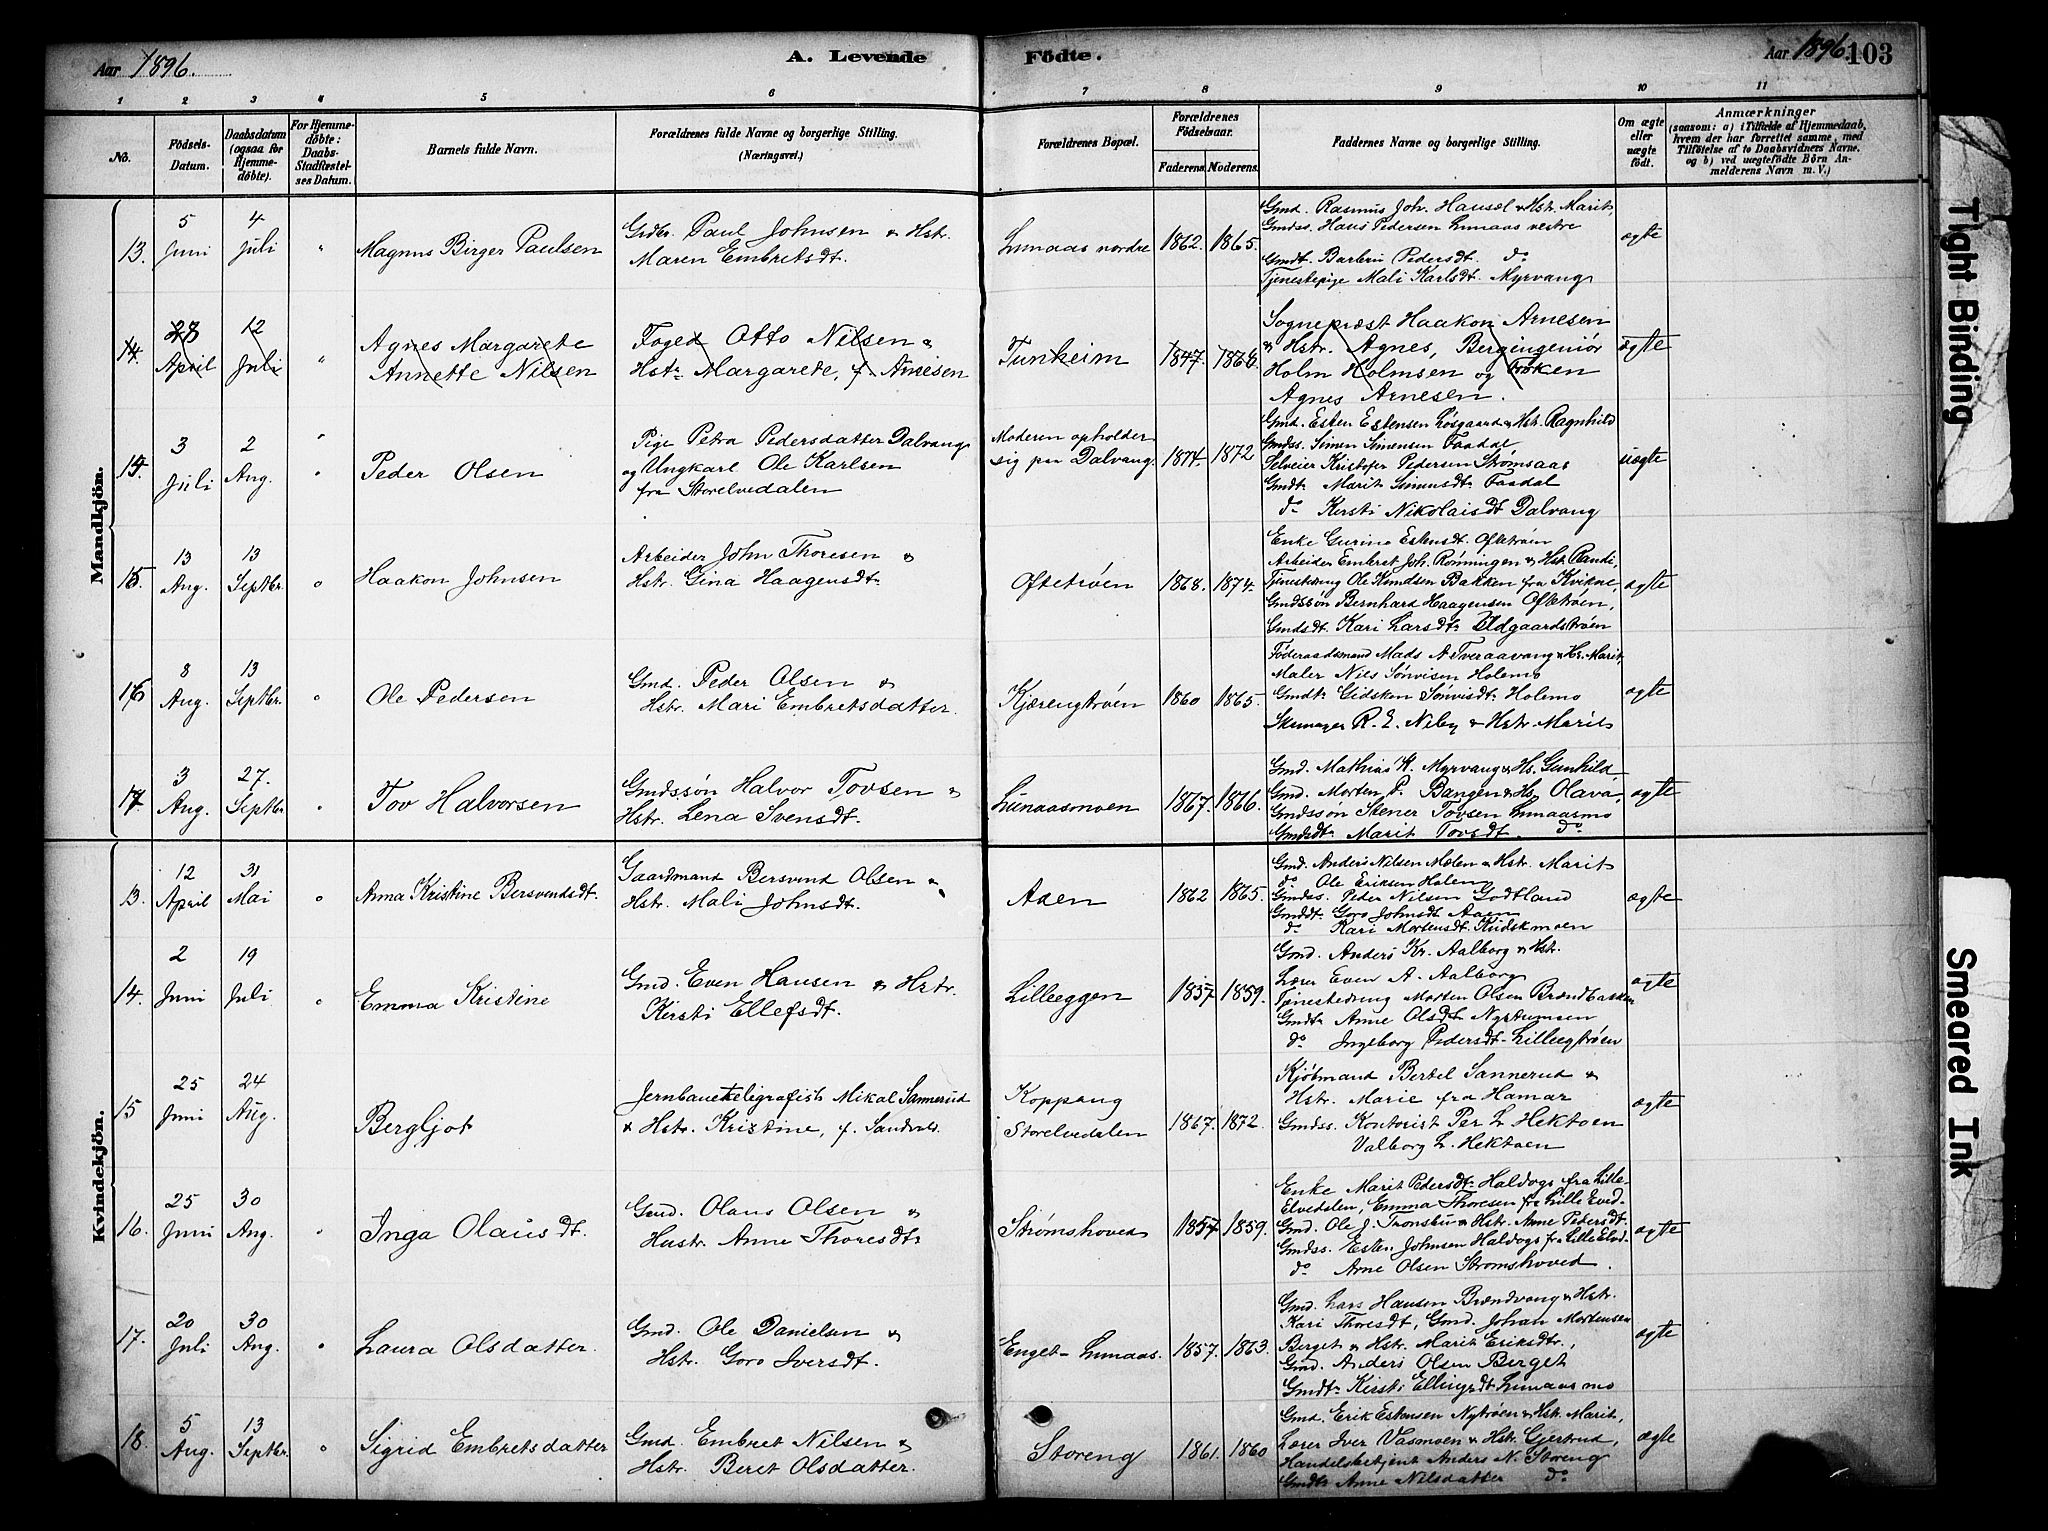 Aar 1896.
A. Levende
Födte.
Aar 1896. 103
1 2 3 4 5 6 7 8 9 10 11
No.
Födsels-
Datum.
Daabsdatum
(ogsaa for
Hjemme-
döbte).
For Hjemme-
döbte:
Daabs-
Stadfæstel-
ses Datum.
Barnets fulde Navn.
Forældrenes fulde Navne og borgerlige Stilling.
(Næringsvei.)
Forældrenes Bopæl.
Forældrenes
Födselsaar.
Faderens. Moderens.
Faddernes Navne og borgerlige Stilling.
Om ægte
eller
uægte
födt.
Anmærkninger
(saasom: a) i Tilfælde af Hjemmedaab,
hvem der har forrettet samme, med
Tilföielse af to Daabsvidners Navne,
og b) ved uægtefödte Börn An-
melderens Navn m. V.)
Mandkjön.
13.
5
Juni
4
Juli
"
Magnus Birger Paulsen
Grdbr. Paul Johnsen & Hstr.
Maren Embretsdt.
Lunaas nordre
1862. 1865.
Gmd. Rasmus Joh. Hausel & Hstr. Marit,
Gmdss. Hans Pedersen Lunaas vestre
Gmdt. Barbru Pedersdt. do
Tjenestepige Mali Karlsdt. Myrvang
ægte
14.
28
April
12
Juli
"
Agnes Margarete
Annette Nilsen
Foged Otto Nilsen &
Hstr. Margarete, f. Arnesen
Tunheim
1847. 1868.
Sognepræst Haakon Arnesen
& Hstr. Agnes, Bergingeniör
Holm Holmsen og frøken
Agnes Arnesen.
ægte
3
Juli
2
Aug.
"
Peder Olsen
Pige Petra Pedersdatter Dalvang
og Ungkarl Ole Karlsen
fra Storelvedalen
Moderen opholder
sig paa Dalvang.
1874. 1872
Gmd. Esten Estensen Løsgaard & Hstr. Ragnhild
Gmdss. Simen Simensen Faadal
Selveier Kristofer Pedersen Strømsaas
Gmdt. Marit Simensdt Faadal
do Kersti Nikolaisdt Dalvang
uægte
13
Aug.
13
Septbr.
"
Haakon Johnsen
Arbeider John Thoresen &
Hstr. Gina Haagensdt.
Oftetrøen
1868. 1874.
Enke Gurine Estensdt. Oftetrøen
Arbeider Embret Joh. Rønningen & Hst. Randi,
Tjenestedreng Ole Knudsen Bakken fra Kvikne,
Gmdssøn Bernhard Haagensen Oftetrøen,
Gmdsdt. Kari Larsdt. Udgaardstrøen
ægte
16
8
Aug.
13
Septbr.
"
Ole Pedersen
Gmd. Peder Olsen &
Hstr. Mari Embretsdatter.
Kjærengtrøen
1860 1865.
Föderaadsmand Mads A. Tveraavang & Hs. Marit,
Maler Nils Sønvisen Holemo
Gmdt. Gidsken Sønvisdt. Holemo
Skomager R. E. Neby & Hstr. Marit
ægte
17.
3
Aug.
27.
Septbr.
"
Tov Halvorsen
Gmdssøn Halvor Tovsen &
Hstr. Lena Svensdt.
Lunaasmoen
1867. 1866.
Gmd. Mathias H. Myrvang & Hs. Gunhild,
Gmd. Morten P. Bangen & Hs. Olava,
Gmdssøn Stener Tovsen Lunaasmo
Gmdsdt. Marit Tovsdt. do
ægte
Kvindekjön.
13.
12
April
31
Mai
"
Anna Kristine Bersvendsdt.
Gaardmand Bersvend Olsen &
Hstr. Mali Johnsdt.
Aaen
1862 1865.
Gmd. Anders Nilsen Moen & Hstr. Marit
do. Ole Eriksen Holen
Gmdss. Peder Nilsen Godtland
Gmddt. Goro Johnsdt Aaen
do Kari Mortensdt. Kudskmoen
ægte
14.
2
Juni
19
Juli
"
Emma Kristine
Gmd. Even Hansen & Hstr.
Kirsti Ellefsdt.
Lilleeggen
1857 1859.
Gmd. Anders Kr. Aalborg & Hstr.
Lærer Even A. Aalborg
Tjenestedreng Morten Olsen Brændbakken
Gmdt. Anne Olsdt Nystumoen
do Ingeborg Pedersdt. Lilleegtrøen
ægte
15
25
Juni
24
Aug.
Bergljot
Jernbanetelegrafist Mikal Sannerud
& Hstr. Kristine, f.
Koppang
Storelvedalen
1867. 1872.
Kjöbmand Bertel Sannerud &
Hstr. Marie fra Hamar
Gmdss. Kontorist Per L Hektoen
Valborg L. Hektoen
ægte
16.
25
Juni
30
Aug.
"
Inga Olausdt.
Gmd. Olaus Olsen &
Hustr. Anne Thoresdt.
Strømshoved
1857 1859.
Enke Marit Pedersdt. Haldogs fra Lille-
Elvedalen, Emma Thoresen fra Lille Elved-
Gmd. Ole J. Tronsbu & Hstr. Anne Pedersdt.
Gmdss. Esten Johnsen Haldogs fr Lille Elvd-
do Arne Olsen Strømshoved.
ægte
17.
20
Juli
30
Aug.
"
Laura Olsdatter.
Gmd. Ole Danielsen &
Hstr. Goro Iversdt.
Enget-Lunaas.
1857. 1863.
Gmd. Lars Hansen Brændvang & Hstr.
Kari Thoresdt, Gmd. Johan Mortensen
Berget & Hstr. Marit Eriksdt.,
Gmd. Anders Olsen Berget
Gmdt. Kirsti Ellingsdt. Lunaasmo
ægte
18.
5
Aug.
13
Septbr.
"
Sigrid Embretsdatter
Gmd. Embret Nilsen &
Hstr. Beret Olsdatter.
Storeng
1861. 1860
Gmd. Erik Estensen Nytrøen & Hstr. Marit,
Lærer Iver Vasmoen & Hstr. Gjertrud,
Handelsbetjent Anders N. Storeng
Gmdt. Anne Nilsdatter do
ægte
Tight Binding
Smeared Ink